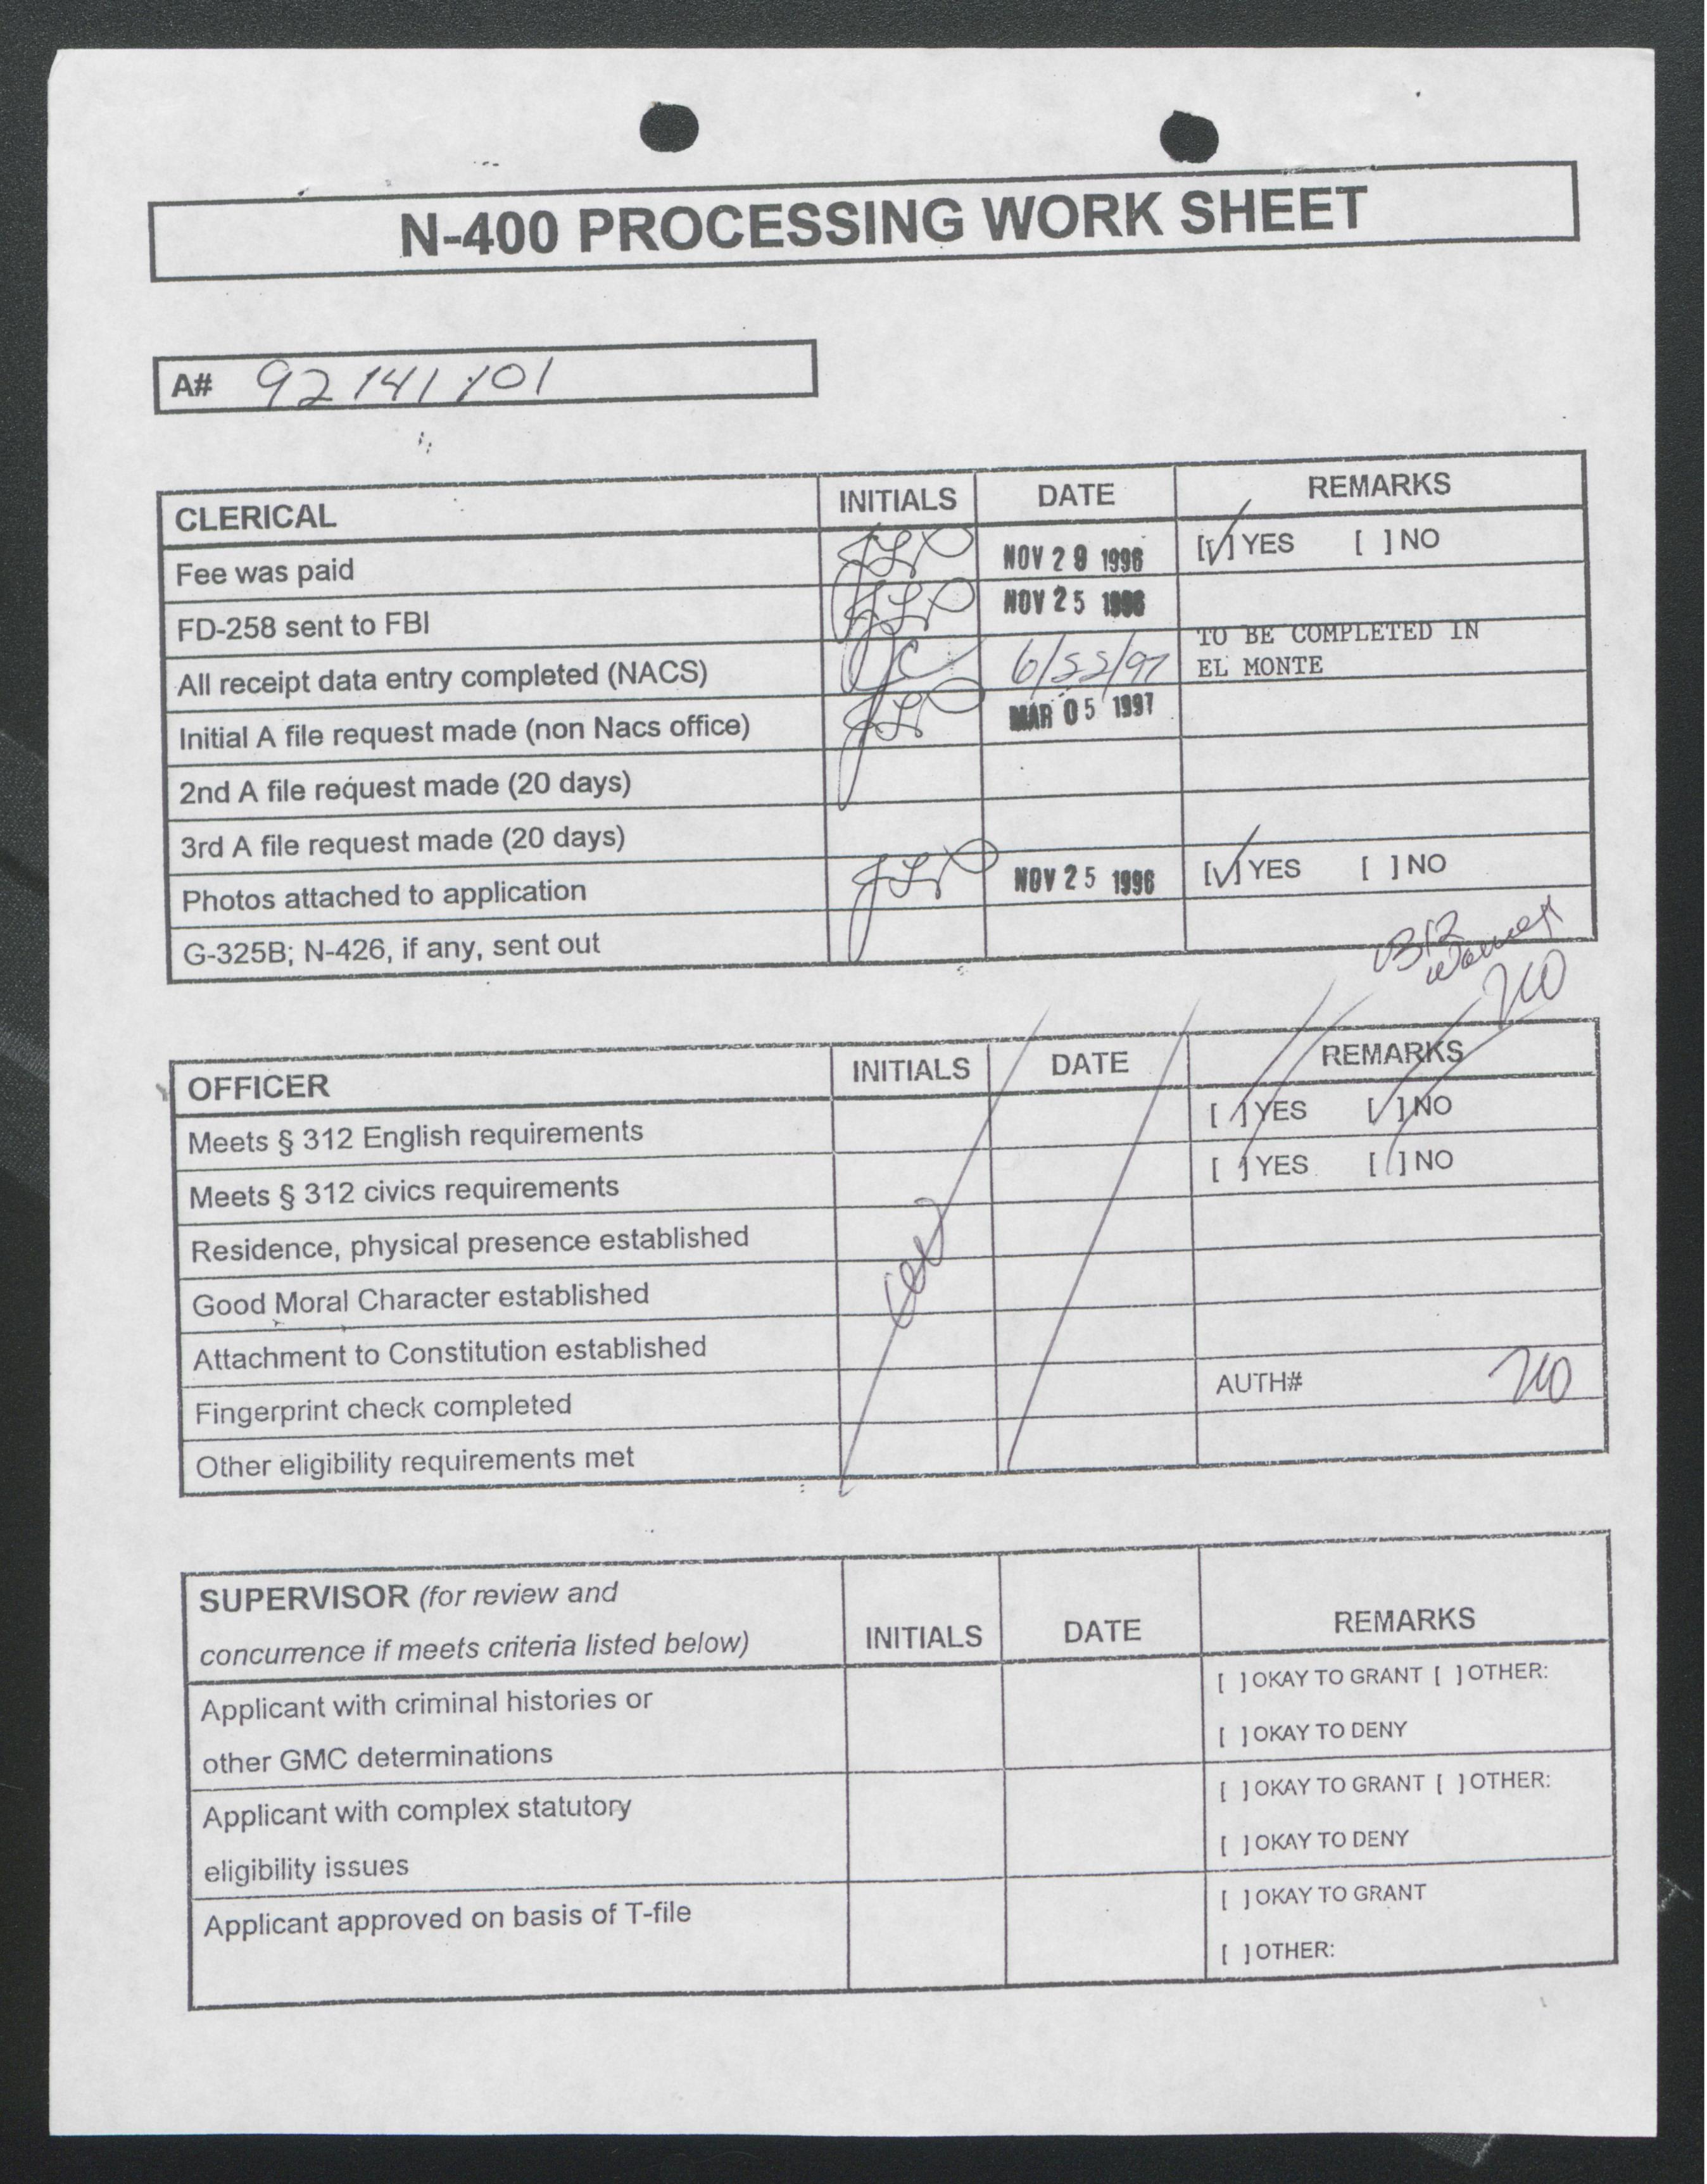 N-400 PROCESSING WORK SHEET
A# 92141101
CLERICAL INITIALS DATE REMARKS
Fee was paid NOV 29 1996 [✓] YES [ ] NO
FD-258 sent to FBI NOV 25 1996
All receipt data entry completed (NACS) JC TO BE COMPLETED IN
EL MONTE
Initial A file request made (non Nacs office) MAR 05 1997
2nd A file request made (20 days)
3rd A file request made (20 days)
Photos attached to application NOV 25 1996 [✓] YES [ ] NO
G-325B; N-426, if any, sent out
312
OFFICER INITIALS DATE REMARKS
Meets § 312 English requirements [ ] YES [ ] NO
Meets § 312 civics requirements [ ] YES [ ] NO
Residence, physical presence established
Good Moral Character established
Attachment to Constitution established
Fingerprint check completed AUTH#
Other eligibility requirements met
SUPERVISOR (for review and
concurrence if meets criteria listed below) INITIALS DATE REMARKS
Applicant with criminal histories or [ ] OKAY TO GRANT [ ] OTHER:
other GMC determinations [ ] OKAY TO DENY
Applicant with complex statutory [ ] OKAY TO GRANT [ ] OTHER:
eligibility issues [ ] OKAY TO DENY
Applicant approved on basis of T-file [ ] OKAY TO GRANT
[ ] OTHER: